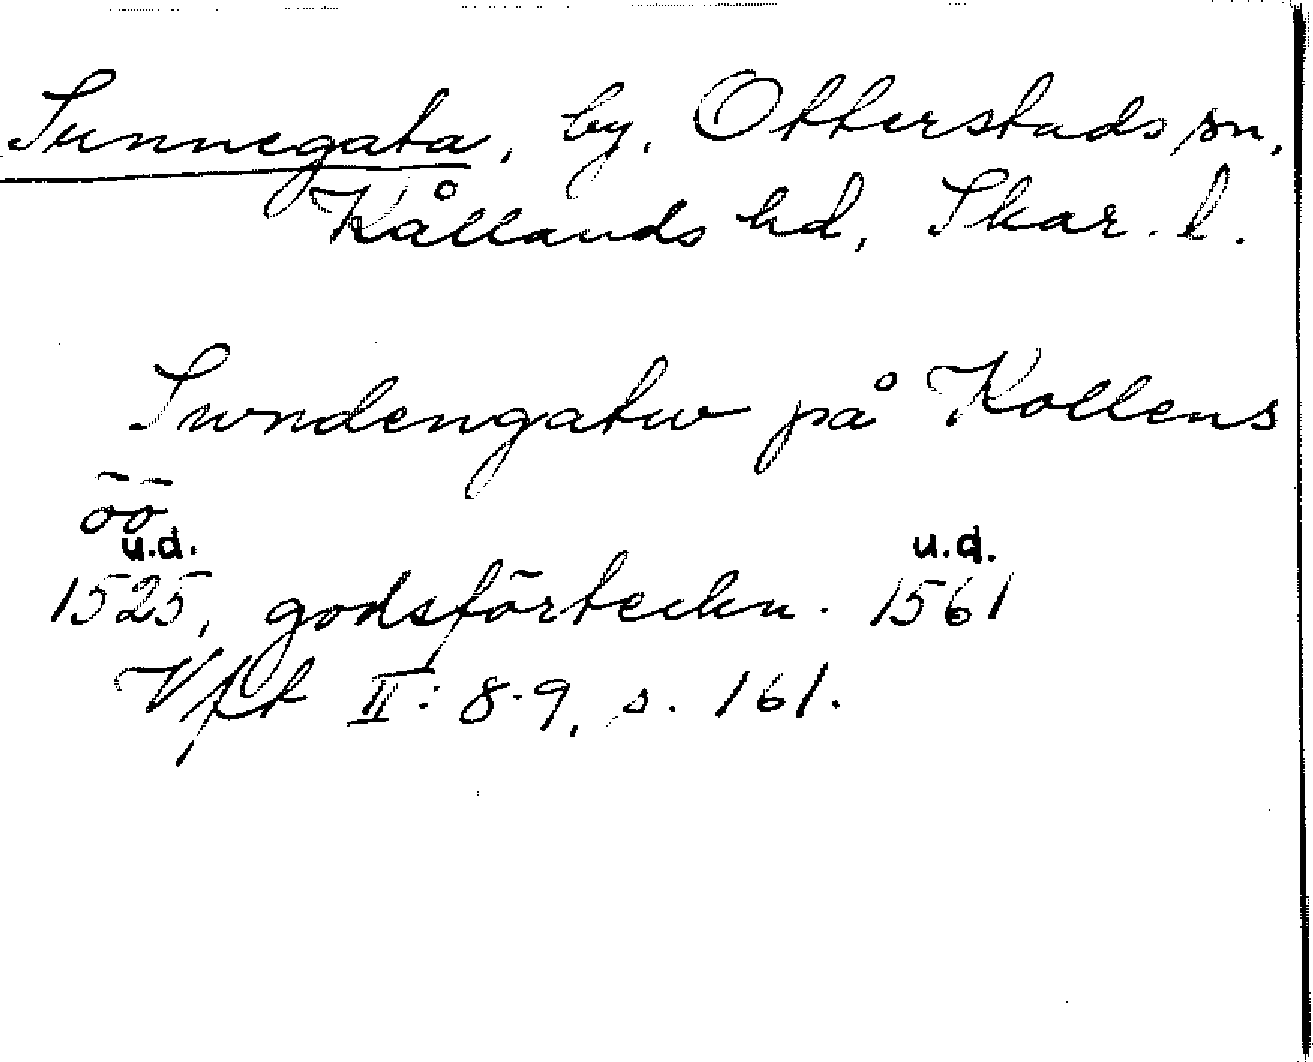 Sunnegata, by, Otterstads sn,
Kållands hd, Skar. l.
Swndengatw på Kollens
öö
u.d. u.d.
1525, godsförteckn. 1561
Vfrt II: 8-9, s. 161.